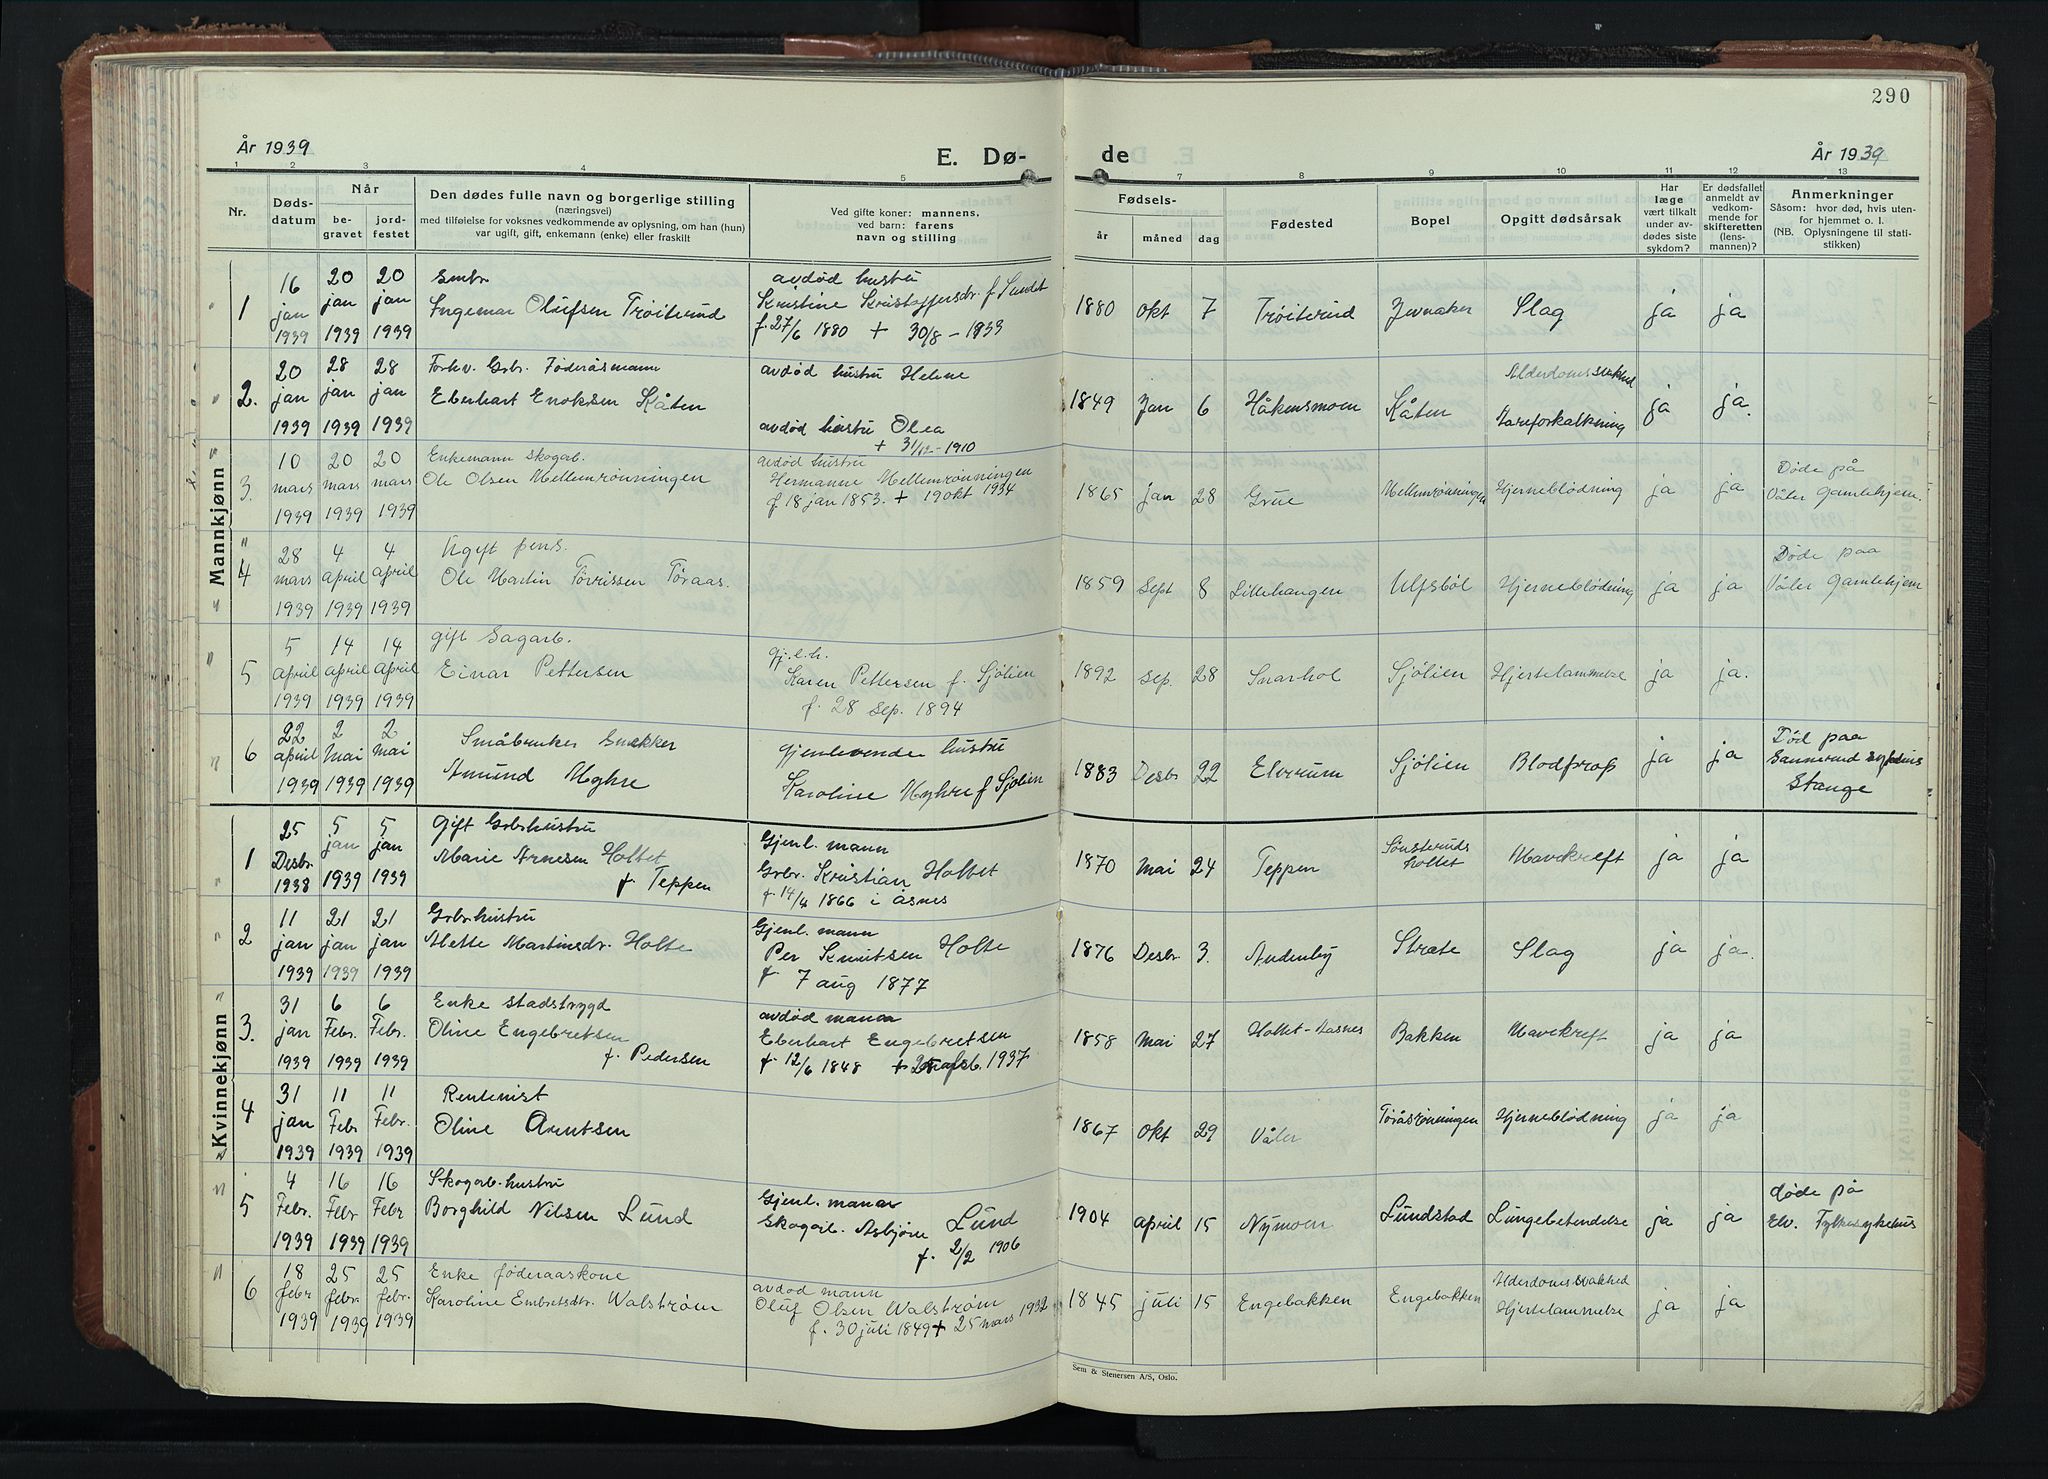 290
År 1939
E. Dø-
de
År 1939
1 2 3 4 5 7 8 9 10 11 12 13
Nr.
Døds-
datum
Når
be-
gravet
jord-
festet
Den dødes fulle navn og borgerlige stilling
(næringsvei)
med tilføielse for voksnes vedkommende av oplysning, om han (hun)
var ugift, gift, enkemann (enke) eller fraskilt
Ved gifte koner: mannens,
ved barn: farens
navn og stilling
Fødsels-
år
måned
dag
Fødested
Bopel
Opgitt dødsårsak
Har
læge
vært tilkalt
under av-
dødes siste
sykdom?
Er dødsfallet
anmeldt av
vedkom-
mende for
skifteretten
(lens-
mannen)?
Anmerkninger
Såsom: hvor død, hvis uten-
for hjemmet o. l.
(NB. Oplysningene til stati-
stikken)
Mannkjønn
1
16 jan 1939
20 jan 1939
20 jan 1939
Gmbr.
Ingemar Olufsen Trøiterud
avdød hustru
Kristine Kristoffersdr. f Sundet
f. 27/6 1880 + 30/8 - 1933
1880 Okt 7 Trøiterud Jevnaker Slag ja ja
2.
20 jan 1939
28 jan 1939
28 jan 1939
Forhv. Grbr. Føderåsmann
Eberhart Enoksen Kåten
avdød hustru Helene
avdød hustru Olea
+ 31/12-1910
1849 Jan 6 Håkensmoen Kåten
Alderdomssvakhed
Aareforkalkning
ja ja.
3.
10 mars 1939
20 mars 1939
20 mars 1939
Enkemann skogarb.
Ole Olsen Mellemrønningen
avdød hustru
Hermanne Mellemrønningen
f 18 jan 1853. + 19 okt 1934
1865 jan 28 Grue Mellemrønningen Hjerneblødning ja ja
Døde på
Våler Gamlehjem.
4
28 mars 1939
4 april 1939
4 april 1939
Ugift pens.
Ole Martin Tørrissen Tøraas.
1859 Sept 8 Lillehaugen Ulfsbøl Hjerneblødning ja ja
Døde paa
Våler Gamlehjem
5
5 april 1939
14 april 1939
14 april 1939
gift Sagarb.
Einar Pettersen
gj.l.h.
Karen Pettersen f. Sjølien
f. 28 sep. 1894
1892 sep. 28 Snarhol Sjølien Hjertelammelse ja ja.
6
22 april 1939
2 Mai 1939
2 mai 1939
Småbruker Snekker
Amund Myhre
gjenlevende hustru
Karoline Myhre f Sjølien
1883 Desbr 22 Elverum Sjølien Blodprop ja ja
Død paa
Sannerud sykehus
Stange
Kvinnekjønn
1
25 Desbr. 1938
5 jan 1939
5 jan 1939
Gift Grbrhustru
Marie Arnesen Holtet
f Teppen
Gjenl. mann
Grbr. Kristian Holtet
f. 14/4 1866 i Åsnes
1870 Mai 24 Teppen
Sønsteruds
holtet
Mavekreft ja ja
2
11 jan 1939
21 jan 1939
21 jan 1939
Grbrhustru
Alette Martinsdr. Holte
Gjenl. mann
Per Knutsen Holte
f 7 aug 1877
1876 Desbr 3. Audenby Stræte Slag ja ja.
3.
31 jan 1939
6 Febr. 1939
6 Febr. 1939
Enke stadstrygd
Oline Engebretsen
f. Pedersen
avdød mann
Eberhart Engebretsen
f 12/6 1848 + 1937
1858 Mai 27 Holtet-Aasnes Bakken Mavekreft ja ja
4
31 jan 1939
11 Febr 1939
11 Febr. 1939
Rentenist
Oline Arntsen
1867 Okt 29 Våler Tøråsrønningen Hjerneblødning ja ja
5
4 Febr. 1939
16 Febr 1939
16 Febr 1939
Skogarb.hustru
Borghild Nilsen Lund
Gjenl. mann
Skogarb. Asbjørn Lund
f. 2/2 1906
1904 april 15 Nymoen Lundstad Lungebetendelse ja ja
døde på
Elv. Fylkessykehus
6
18 febr 1939
25 febr. 1939
25 febr. 1939
Enke føderaaskone
Karoline Embretsdtr. Walstrøm
avdød mann
Oluf Olsen Walstrøm
f. 30 juli 1849 + 25 mars 1932
1845 juli 15 Engebakken Engebakken
Alderdomssvakhed
Hjertelammelse
ja ja
Sem & Stenersen A/S, Oslo.